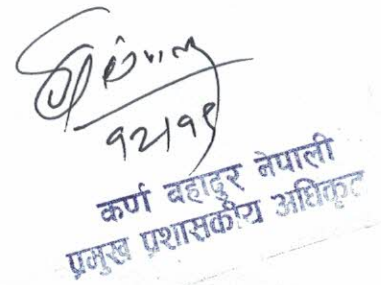 १२।१९
कर्ण बहादुर नेपाली
प्रमुख प्रशासकीय अधिकृत